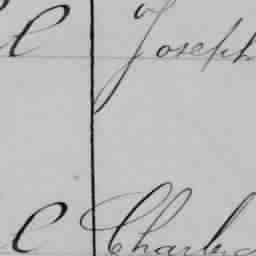 C Joseph
C Charles